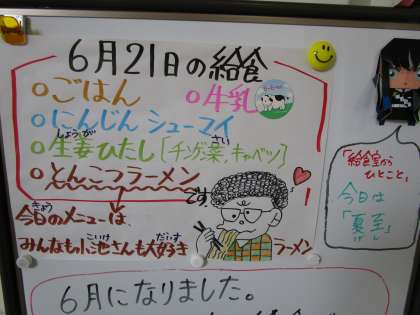 6月21日の給食
○ごはん ○牛乳
○にんじんシューマイ
○生姜ひたし[チンゲン菜、キャベツ]
しょうが さい
○とんこつラーメン
です。
今日のメニューは、
きょう
みんなも小池さんも大好き
こいけ だいす
ラーメン
「給食室から
ひとこと」
今日は
「夏至」
げし
6月になりました。